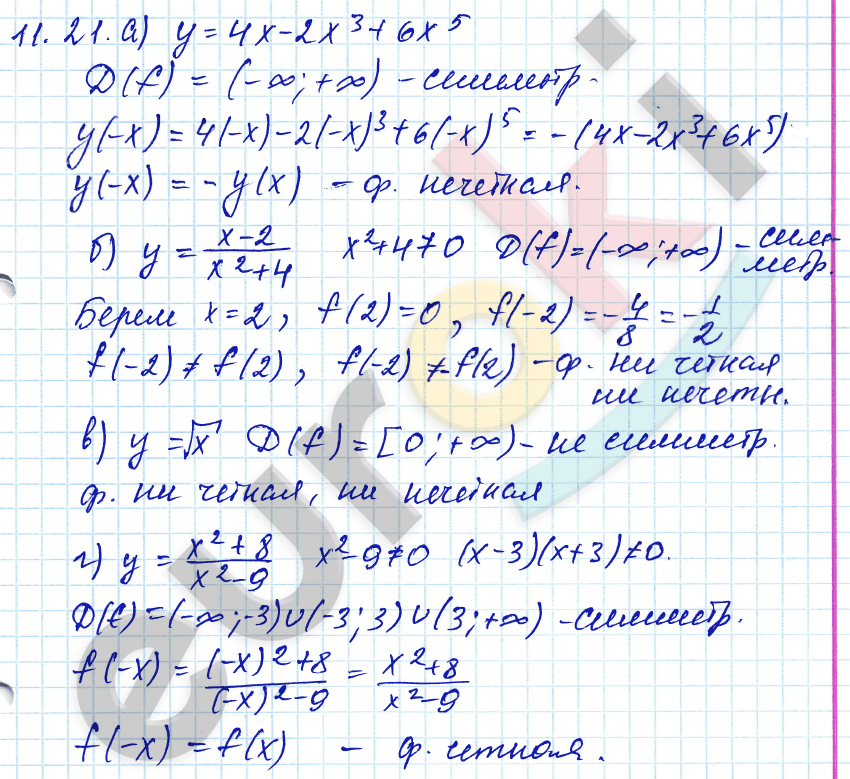 11.21. а) y = 4x - 2x³ + 6x⁵
D(f) = (-∞; +∞) - симметр.
y(-x) = 4(-x) - 2(-x)³ + 6(-x)⁵ = -(4x - 2x³ + 6x⁵)
y(-x) = -y(x) - ф. нечетная.
б) y = (x-2)/(x²+4) x²+4≠0 D(f) = (-∞; +∞) - симметр.
Берем x = 2, f(2) = 0, f(-2) = -4/8 = -1/2
f(-2) ≠ f(2), f(-2) ≠ -f(2) - ф. ни четная
ни нечетн.
в) y = √x D(f) = [0; +∞) - не симметр.
ф. ни четная, ни нечетная
г) y = (x²+8)/(x²-9) x²-9≠0 (x-3)(x+3)≠0.
D(f) = (-∞; -3)∪(-3; 3)∪(3; +∞) - симметр.
f(-x) = ((-x)²+8)/((-x)²-9) = (x²+8)/(x²-9)
f(-x) = f(x) - ф. четная.
euroki